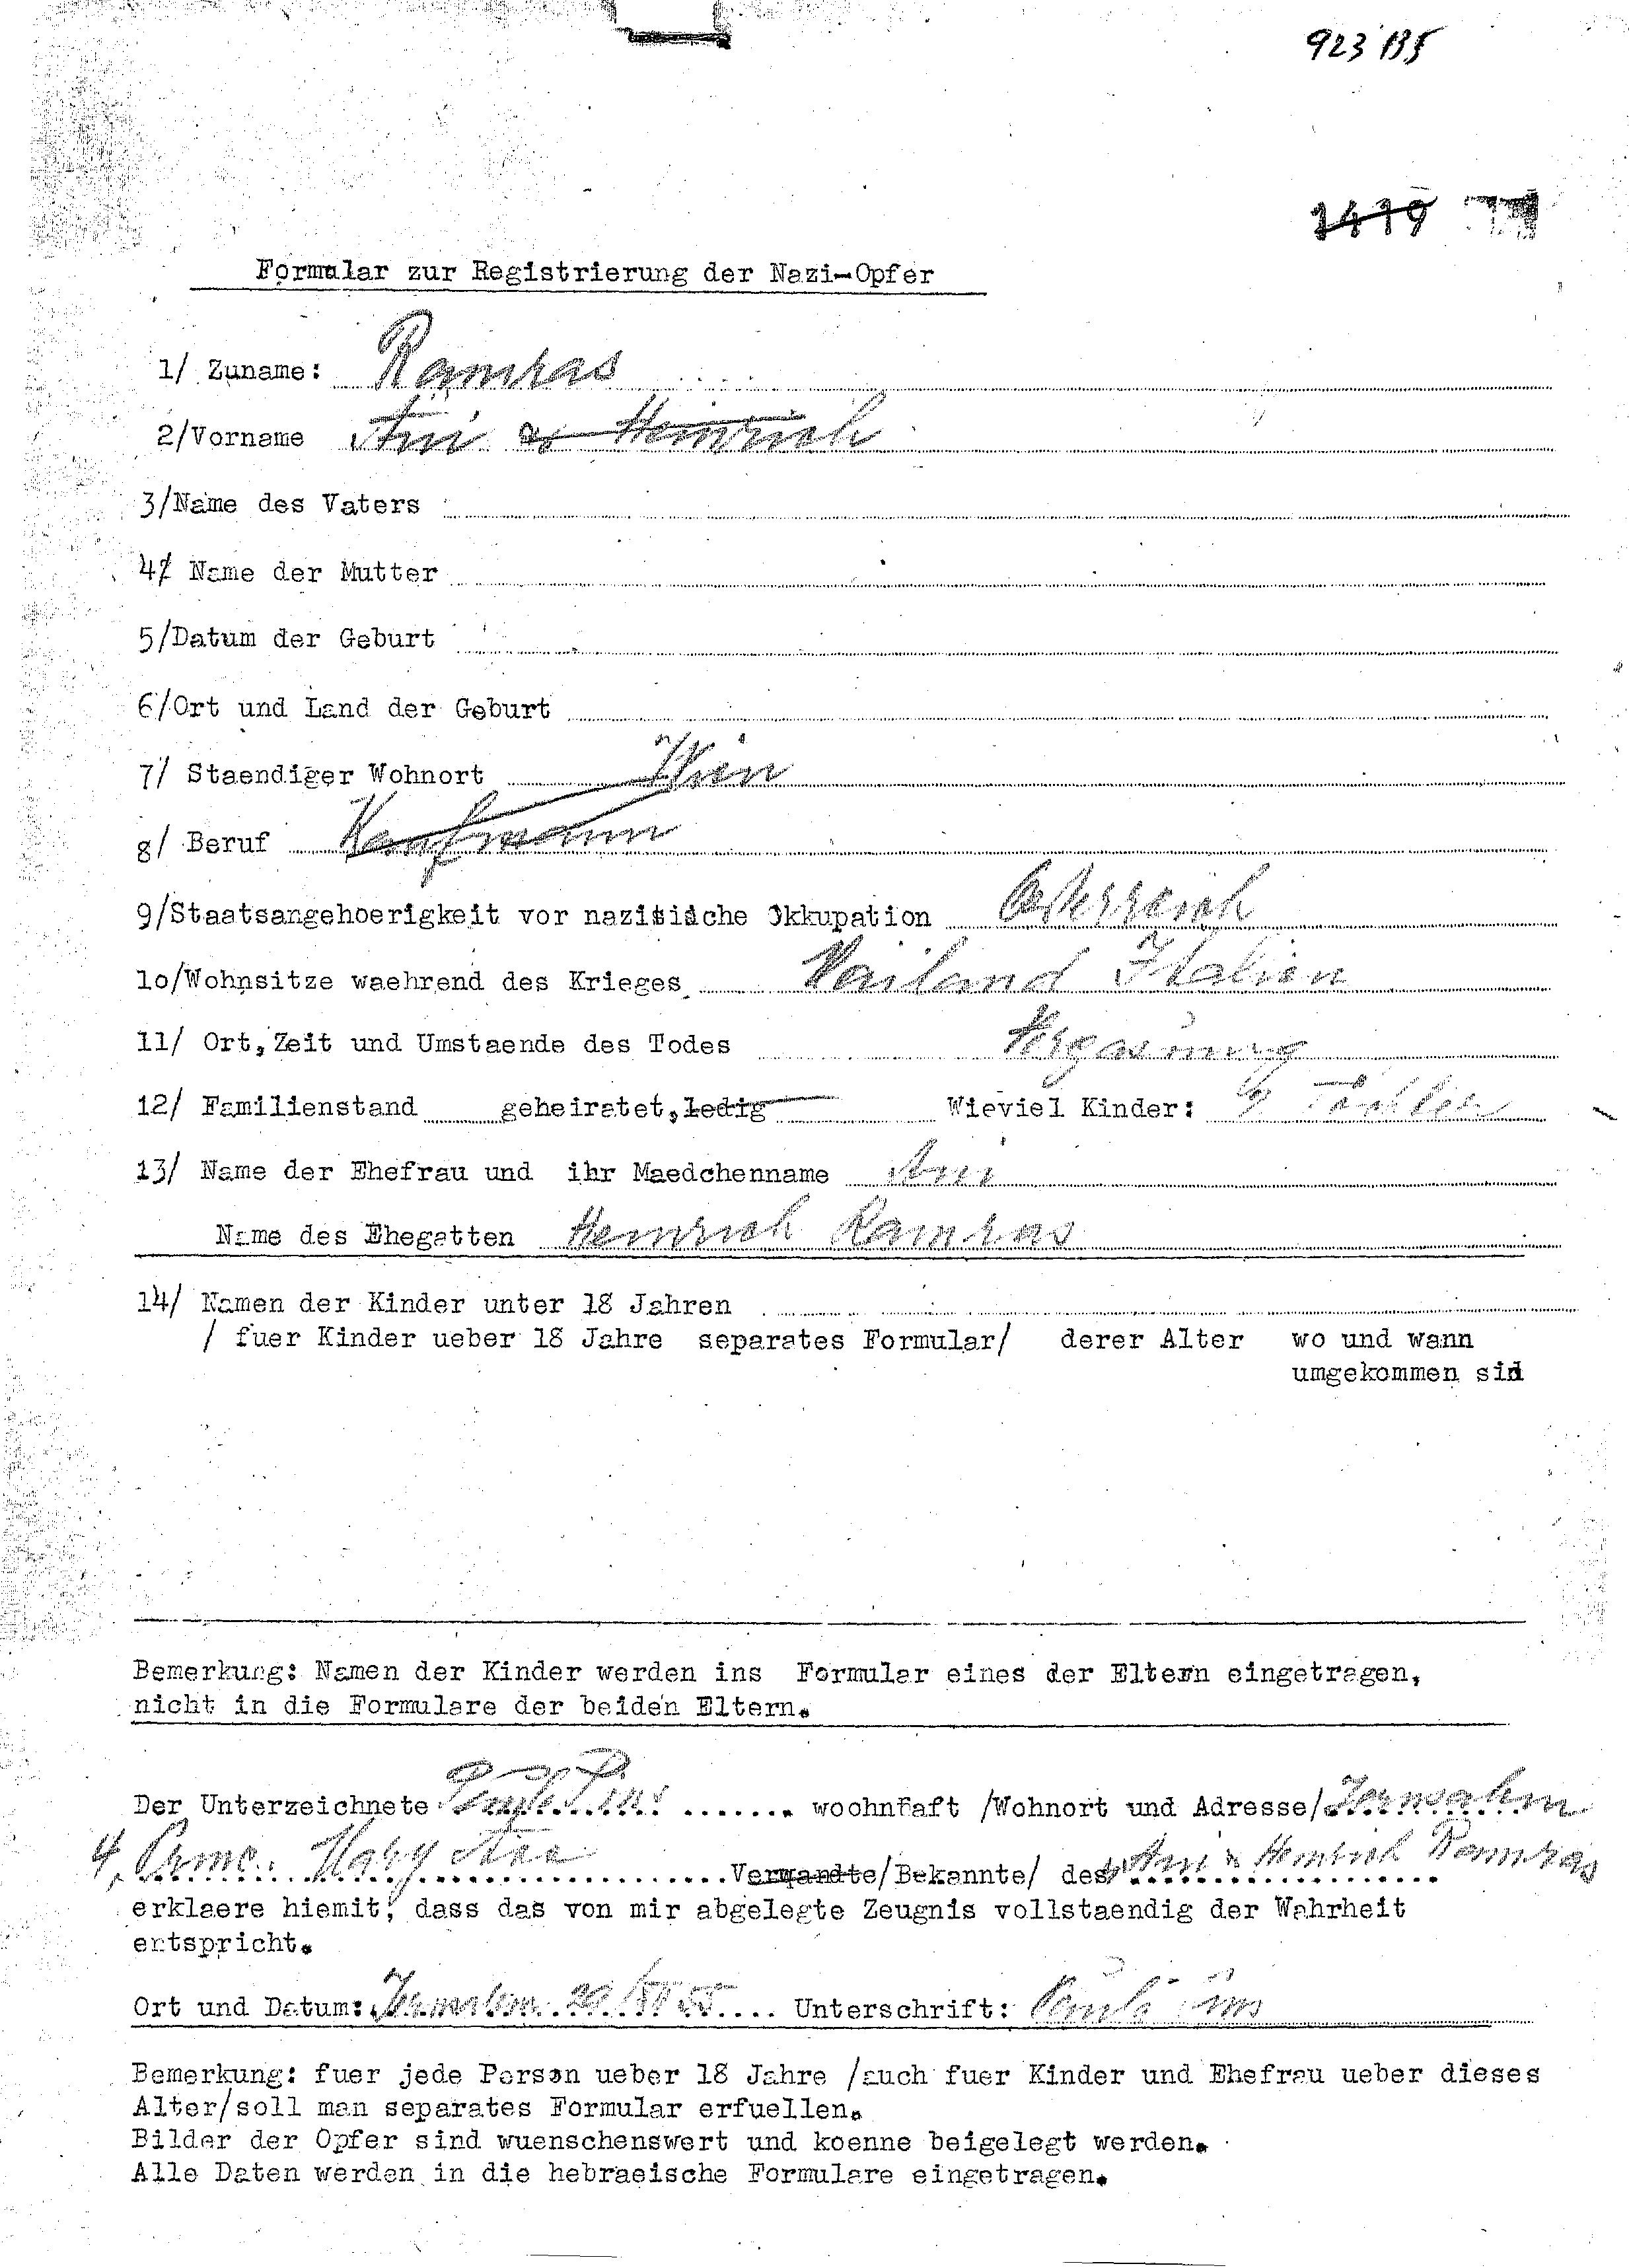 923 135
1419
Formular zur Registrierung der Nazi-Opfer
1/ Zuname: Ramras
2/Vorname Ani & Heinrich
3/Name des Vaters
4/ Name der Mutter
5/Datum der Geburt
6/Ort und Land der Geburt
7/ Staendiger Wohnort Wien
8/ Beruf Kaufmann
9/Staatsangehoerigkeit vor nazisische Okkupation Österreich
10/Wohnsitze waehrend des Krieges Mailand Italien
11/ Ort, Zeit und Umstaende des Todes Vergasung
12/ Familienstand geheiratet, ledig Wieviel Kinder: Tochter
13/ Name der Ehefrau und ihr Maedchenname Ani
Name des Ehegatten Heinrich Ramras
14/ Namen der Kinder unter 18 Jahren
/ fuer Kinder ueber 18 Jahre separates Formular/ derer Alter wo und wann
umgekommen sid
Bemerkung: Namen der Kinder werden ins Formular eines der Eltern eingetragen,
nicht in die Formulare der beiden Eltern.
Der Unterzeichnete woohnhaft /Wohnort und Adresse/ Jerusalem
4, Verwandte/Bekannte/ des Ani & Heinrich Ramras
erklaere hiemit, dass das von mir abgelegte Zeugnis vollstaendig der Wahrheit
entspricht.
Ort und Datum: Jerusalem Unterschrift:
Bemerkung: fuer jede Person ueber 18 Jahre /auch fuer Kinder und Ehefrau ueber dieses
Alter/soll man separates Formular erfuellen.
Bilder der Opfer sind wuenschenswert und koenne beigelegt werden.
Alle Daten werden in die hebraeische Formulare eingetragen.